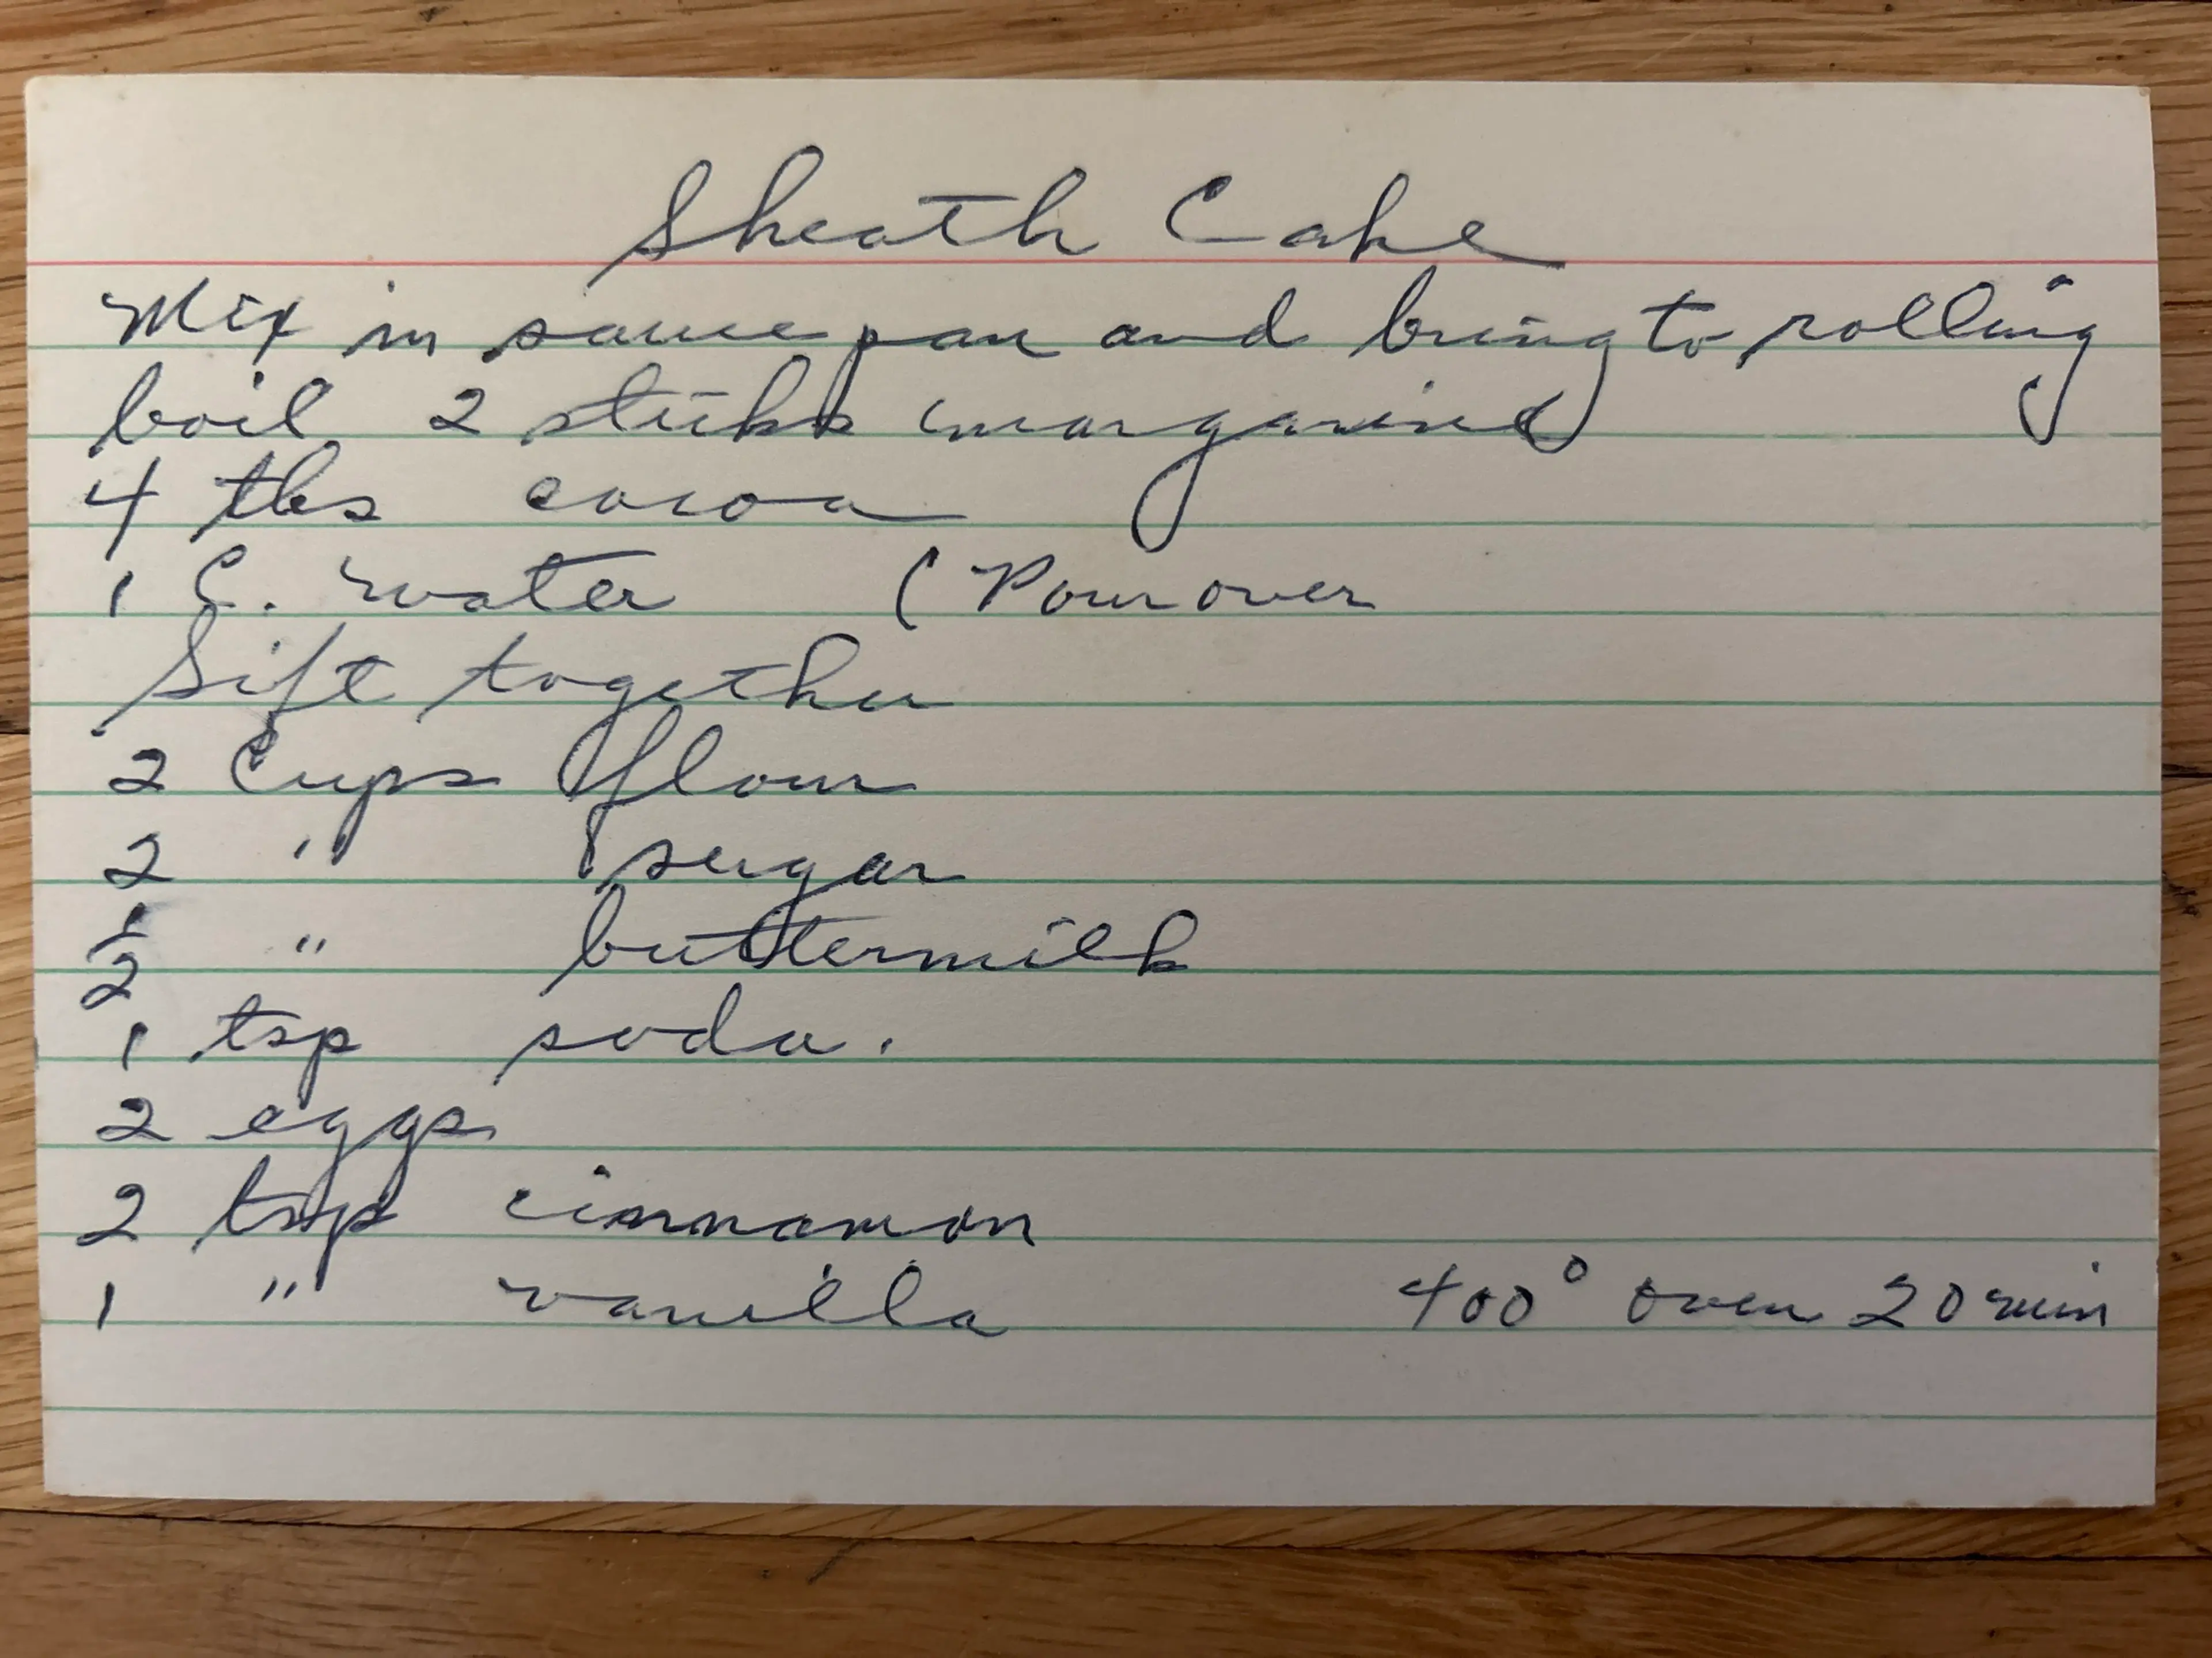 Sheath Cake
Mix in sauce pan and bring to rolling
boil 2 sticks margarine
4 tbs cocoa
1 C. water ( Pour over
Sift together
2 Cups flour
2 " sugar
1/2 " buttermilk
1 tsp soda.
2 eggs
2 tsp cinnamon
1 " vanilla 400° oven 20 min